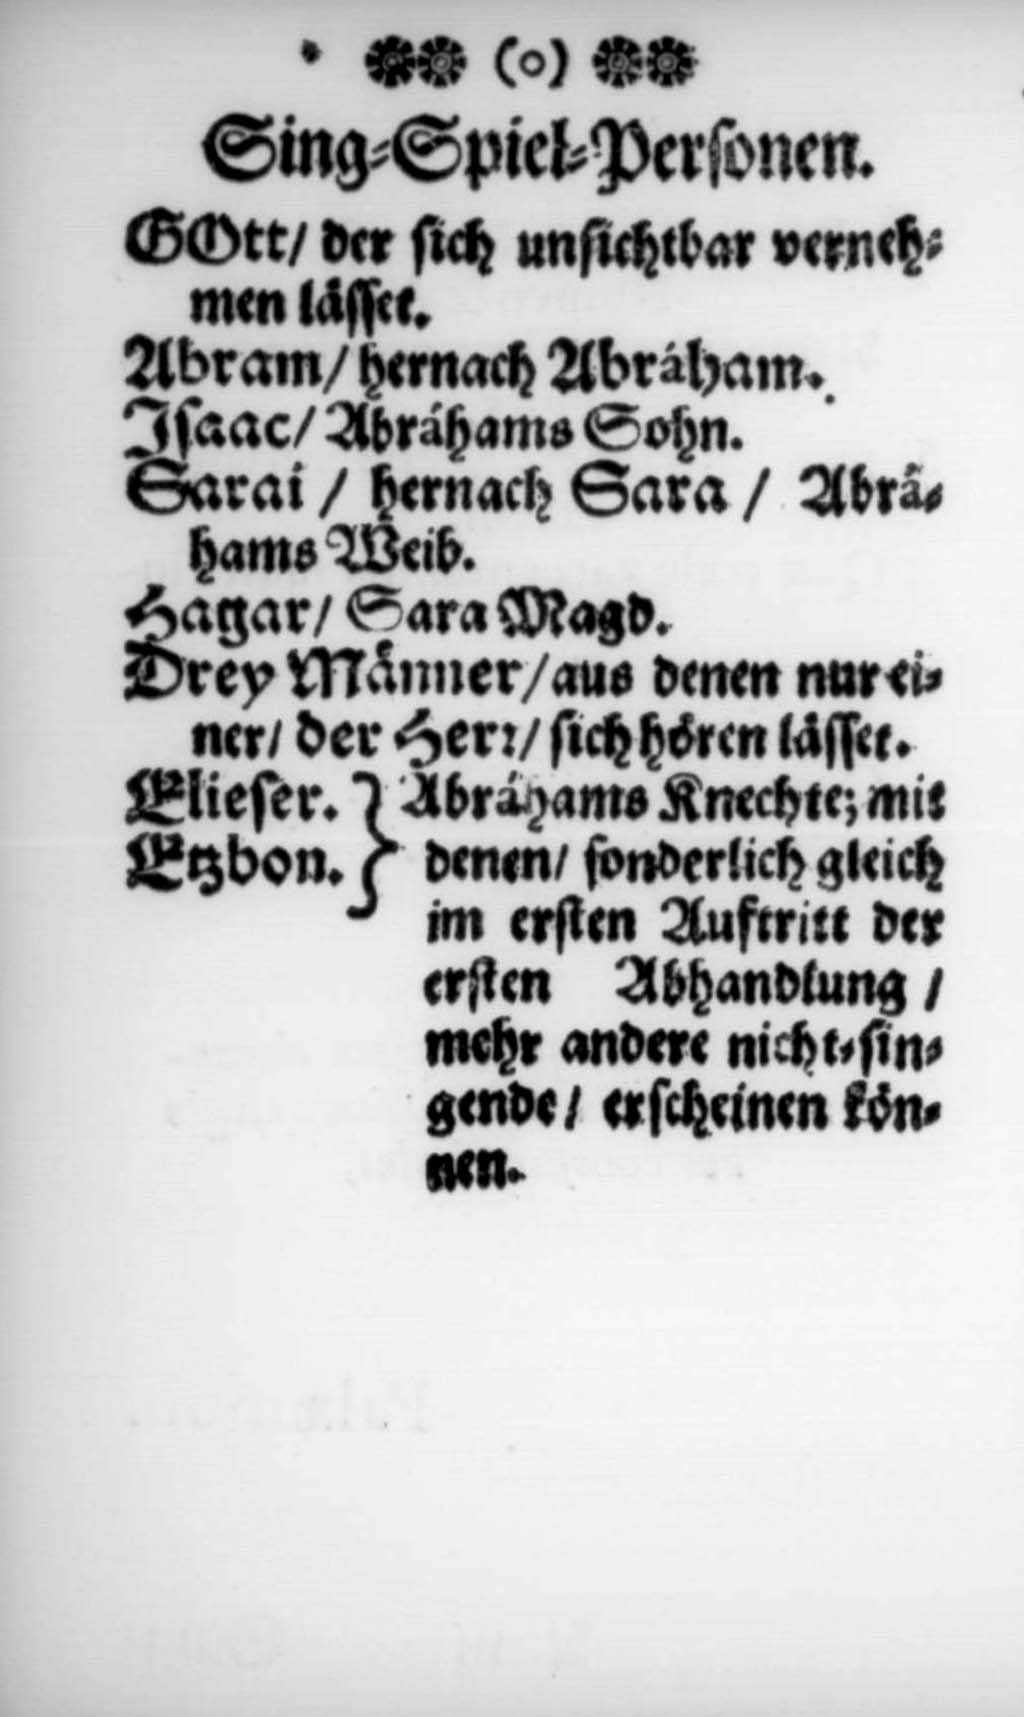 (o)
Sing-Spiel-Personen.
GOtt/ der sich unsichtbar verneh-
men lässet.
Abram/ hernach Abráham.
Isaac/ Abráhams Sohn.
Sarai / hernach Sara / Abrá-
hams Weib.
Hagar/ Sara Magd.
Drey Männer/ aus denen nur ei-
ner/ der Herr/ sich hören lässet.
Elieser. } Abráhams Knechte; mit
Etzbon. } denen/ sonderlich gleich
im ersten Auftritt der
ersten Abhandlung /
mehr andere nicht-sin-
gende/ erscheinen kön-
nen.